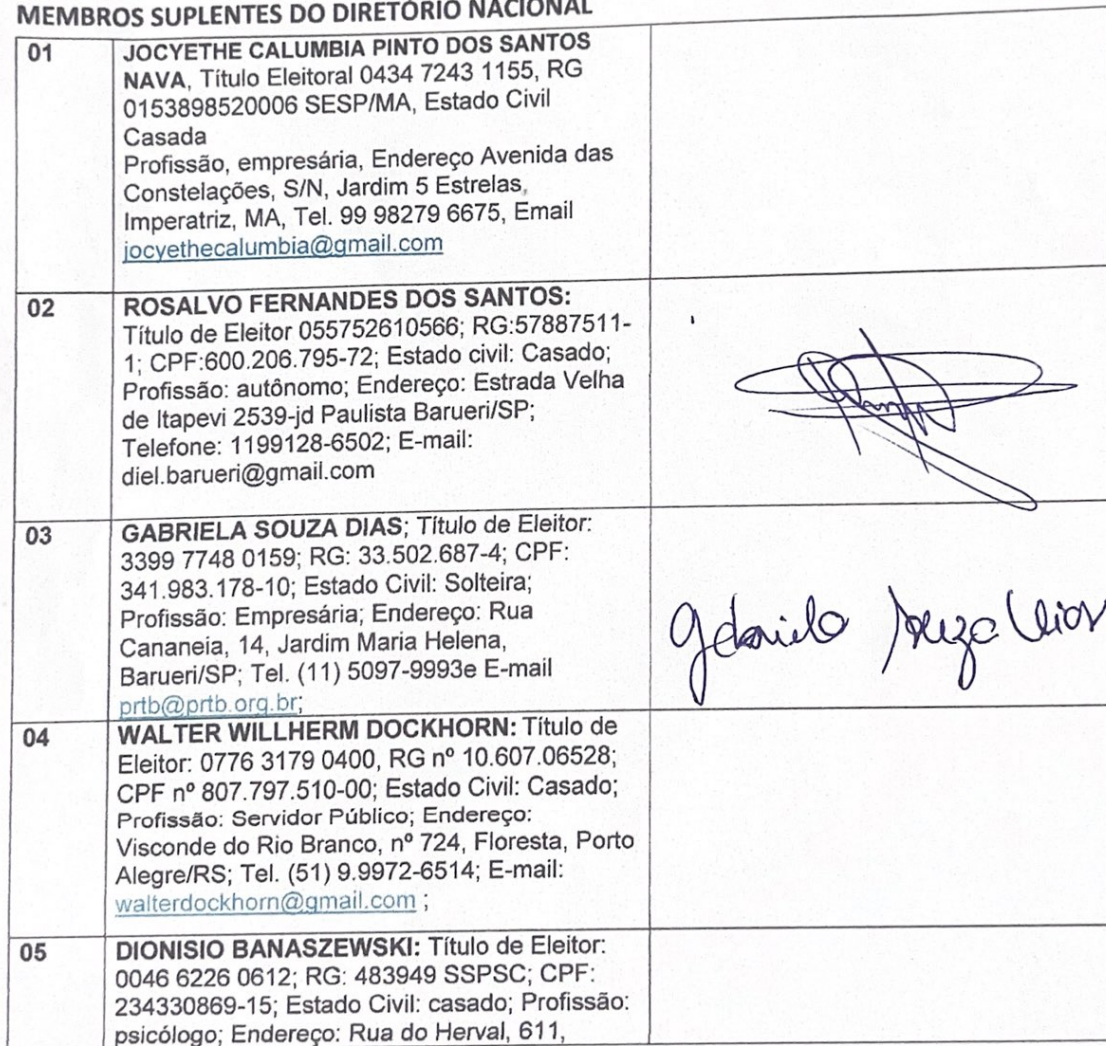 MEMBROS SUPLENTES DO DIRETÓRIO NACIONAL
01
JOCYETHE CALUMBIA PINTO DOS SANTOS
NAVA, Título Eleitoral 0434 7243 1155, RG
0153898520006 SESP/MA, Estado Civil
Casada
Profissão, empresária, Endereço Avenida das
Constelações, S/N, Jardim 5 Estrelas,
Imperatriz, MA, Tel. 99 98279 6675, Email
jocyethecalumbia@gmail.com
02
ROSALVO FERNANDES DOS SANTOS:
Título de Eleitor 055752610566; RG:57887511-
1; CPF:600.206.795-72; Estado civil: Casado;
Profissão: autônomo; Endereço: Estrada Velha
de Itapevi 2539-jd Paulista Barueri/SP;
Telefone: 1199128-6502; E-mail:
diel.barueri@gmail.com
03
GABRIELA SOUZA DIAS; Título de Eleitor:
3399 7748 0159; RG: 33.502.687-4; CPF:
341.983.178-10; Estado Civil: Solteira;
Profissão: Empresária; Endereço: Rua
Cananeia, 14, Jardim Maria Helena,
Barueri/SP; Tel. (11) 5097-9993e E-mail
prtb@prtb.org.br;
Gabriela Souza Dias
04
WALTER WILLHERM DOCKHORN: Título de
Eleitor: 0776 3179 0400, RG nº 10.607.06528;
CPF nº 807.797.510-00; Estado Civil: Casado;
Profissão: Servidor Público; Endereço:
Visconde do Rio Branco, nº 724, Floresta, Porto
Alegre/RS; Tel. (51) 9.9972-6514; E-mail:
walterdockhorn@gmail.com ;
05
DIONISIO BANASZEWSKI: Título de Eleitor:
0046 6226 0612; RG: 483949 SSPSC; CPF:
234330869-15; Estado Civil: casado; Profissão:
psicólogo; Endereço: Rua do Herval, 611,